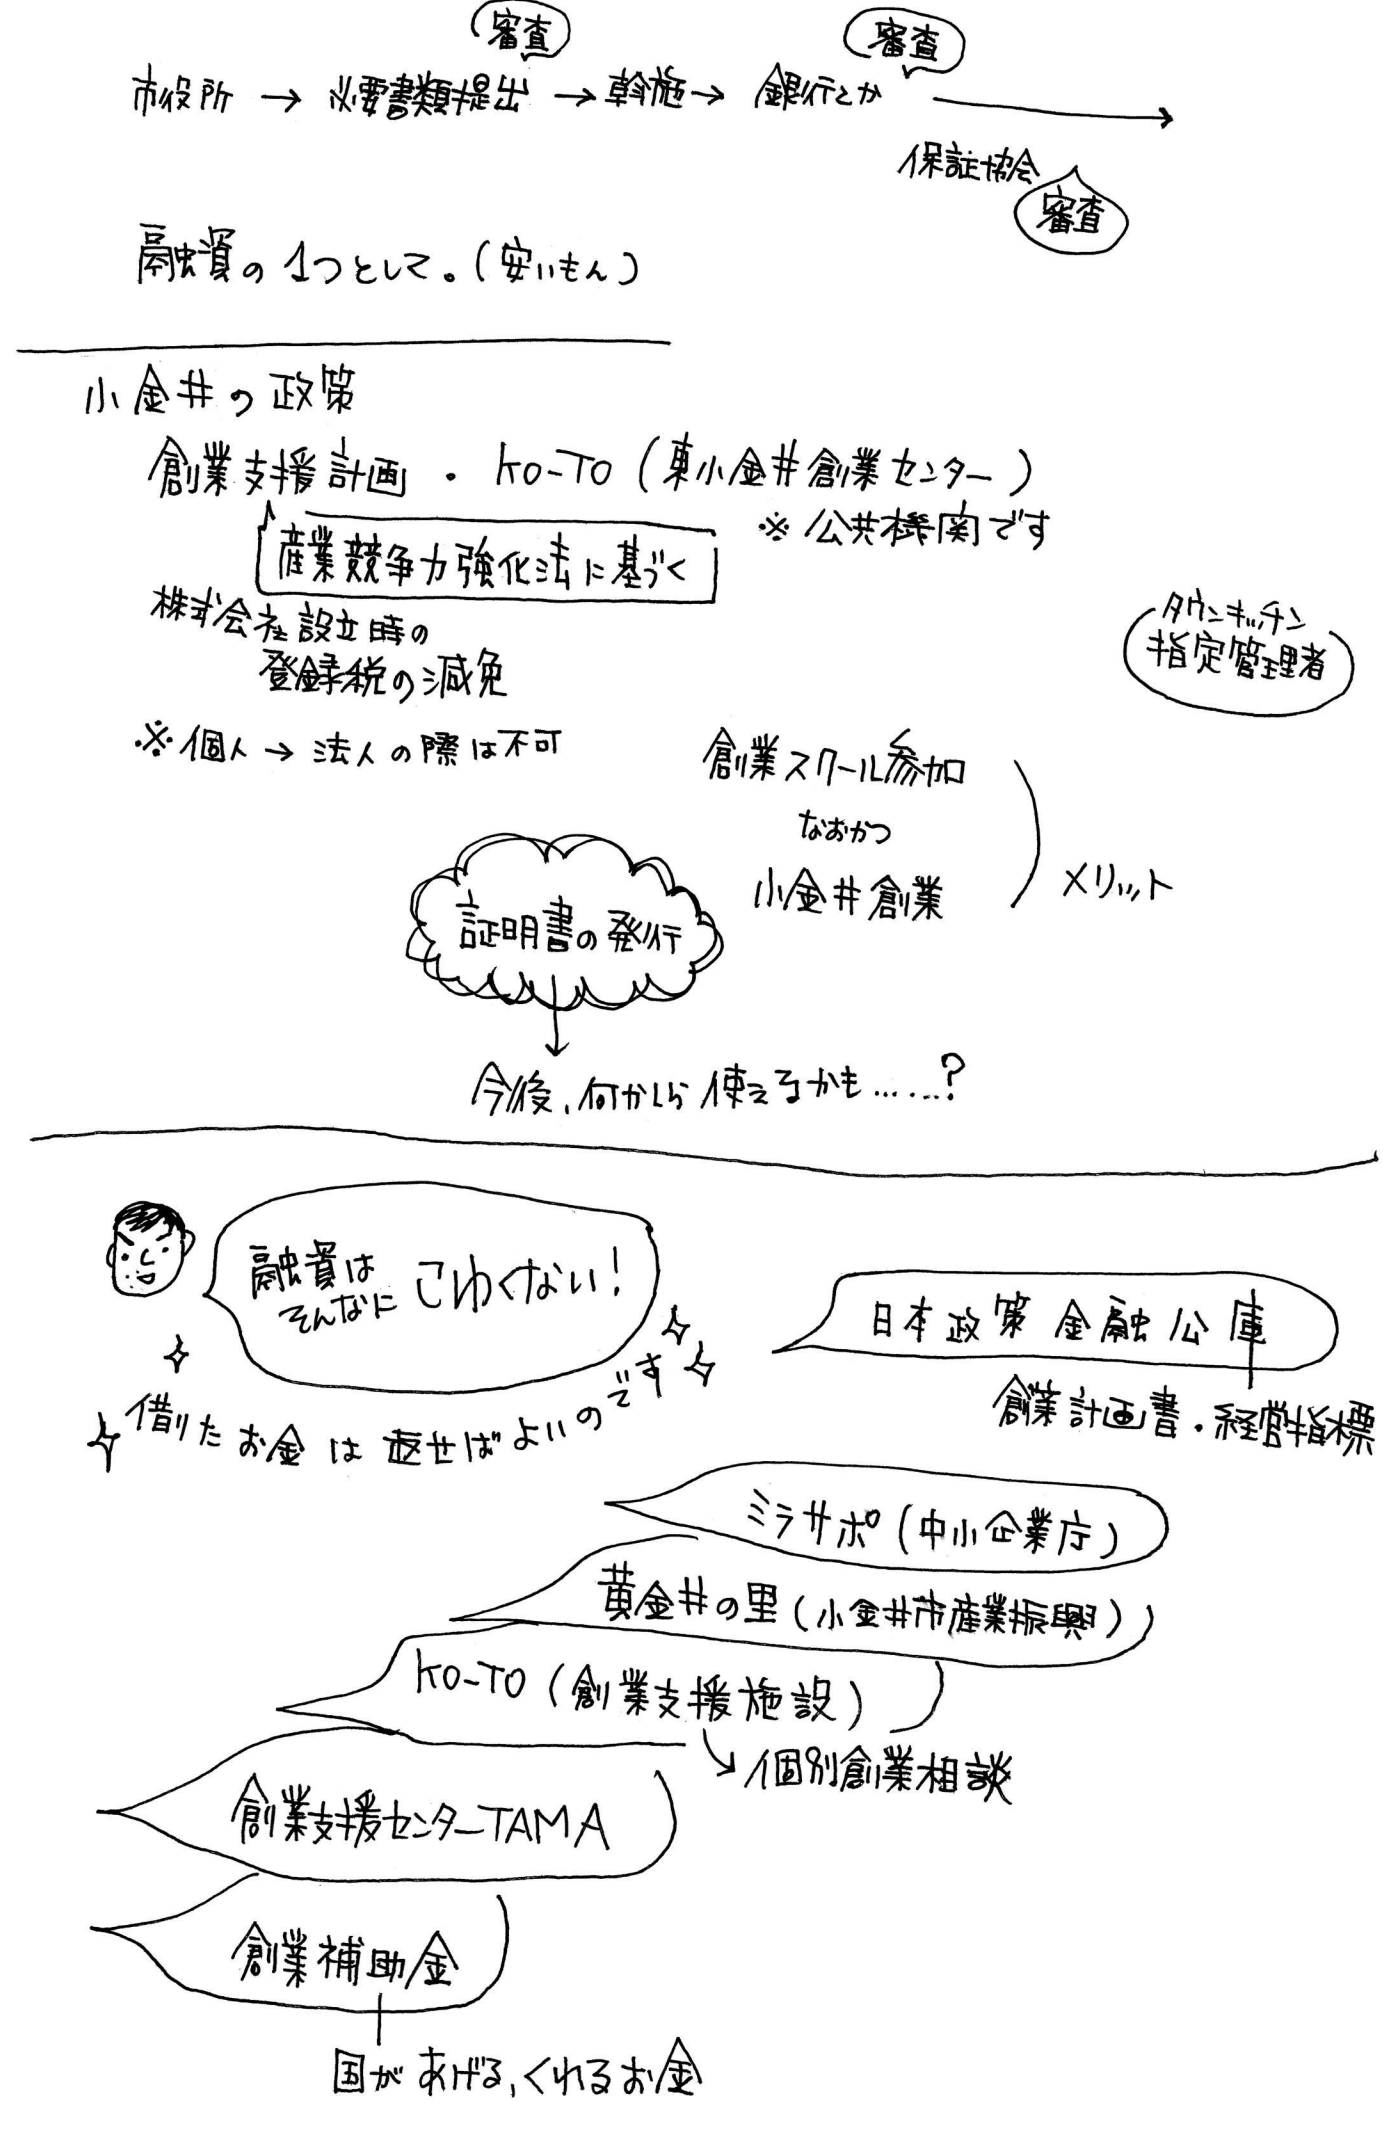 審査
審査
市役所 → 必要書類提出 → 斡旋 → 銀行とか →
保証協会
審査
融資の1つとして。(安いもん)
小金井の政策
創業支援計画 ・ KO-TO (東小金井創業センター)
※公共機関です
産業競争力強化法に基づく
株式会社設立時の
登録税の減免
タウンキッチン
指定管理者
※個人→法人の際は不可
創業スクール参加
なおかつ
小金井創業
メリット
証明書の発行
今後、何かしら使えるかも……?
融資は
そんなに こわくない!
日本政策金融公庫
創業計画書・経営指標
借りたお金は返せばよいのです
ミラサポ(中小企業庁)
黄金井の里(小金井市産業振興)
KO-TO (創業支援施設)
個別創業相談
創業支援センターTAMA
創業補助金
国があげる、くれるお金